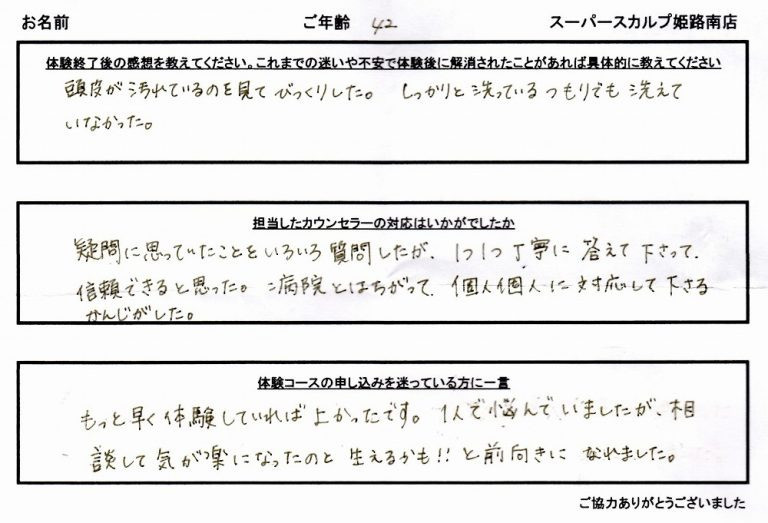 お名前 ご年齢 42 スーパースカルプ姫路南店
体験終了後の感想を教えてください。これまでの迷いや不安で体験後に解消されたことがあれば具体的に教えてください
頭皮が汚れているのを見てびっくりした。 しっかりと洗っているつもりでも洗えて
いなかった。
担当したカウンセラーの対応はいかがでしたか
疑問に思っていたことをいろいろ質問したが、1つ1つ丁寧に答えて下さって、
信頼できると思った。病院とはちがって、個人個人に対応して下さる
かんじがした。
体験コースの申し込みを迷っている方に一言
もっと早く体験していれば よかったです。1人で悩んでいましたが、相
談して気が楽になったのと 生えるかも!!と前向きに なれました。
ご協力ありがとうございました